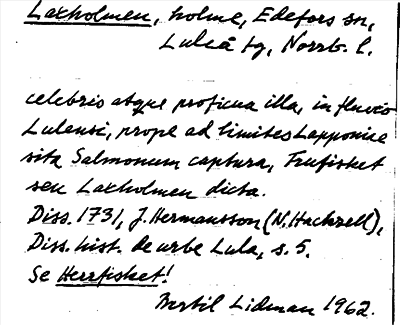 Laxholmen, holme, Edefors sn,
Luleå tg, Norrb. l.
celebris atque proficua illa, in fluvio
Lulensi, prope ad limites Lapponiae
sita Salmonum captura, Trufisket
seu Laxholmen dicta.
Diss. 1731, J. Hermansson (N. Hackzell),
Diss. hist. de urbe Lula, s. 5.
Se Herrfisket!
Bertil Lidman 1962.